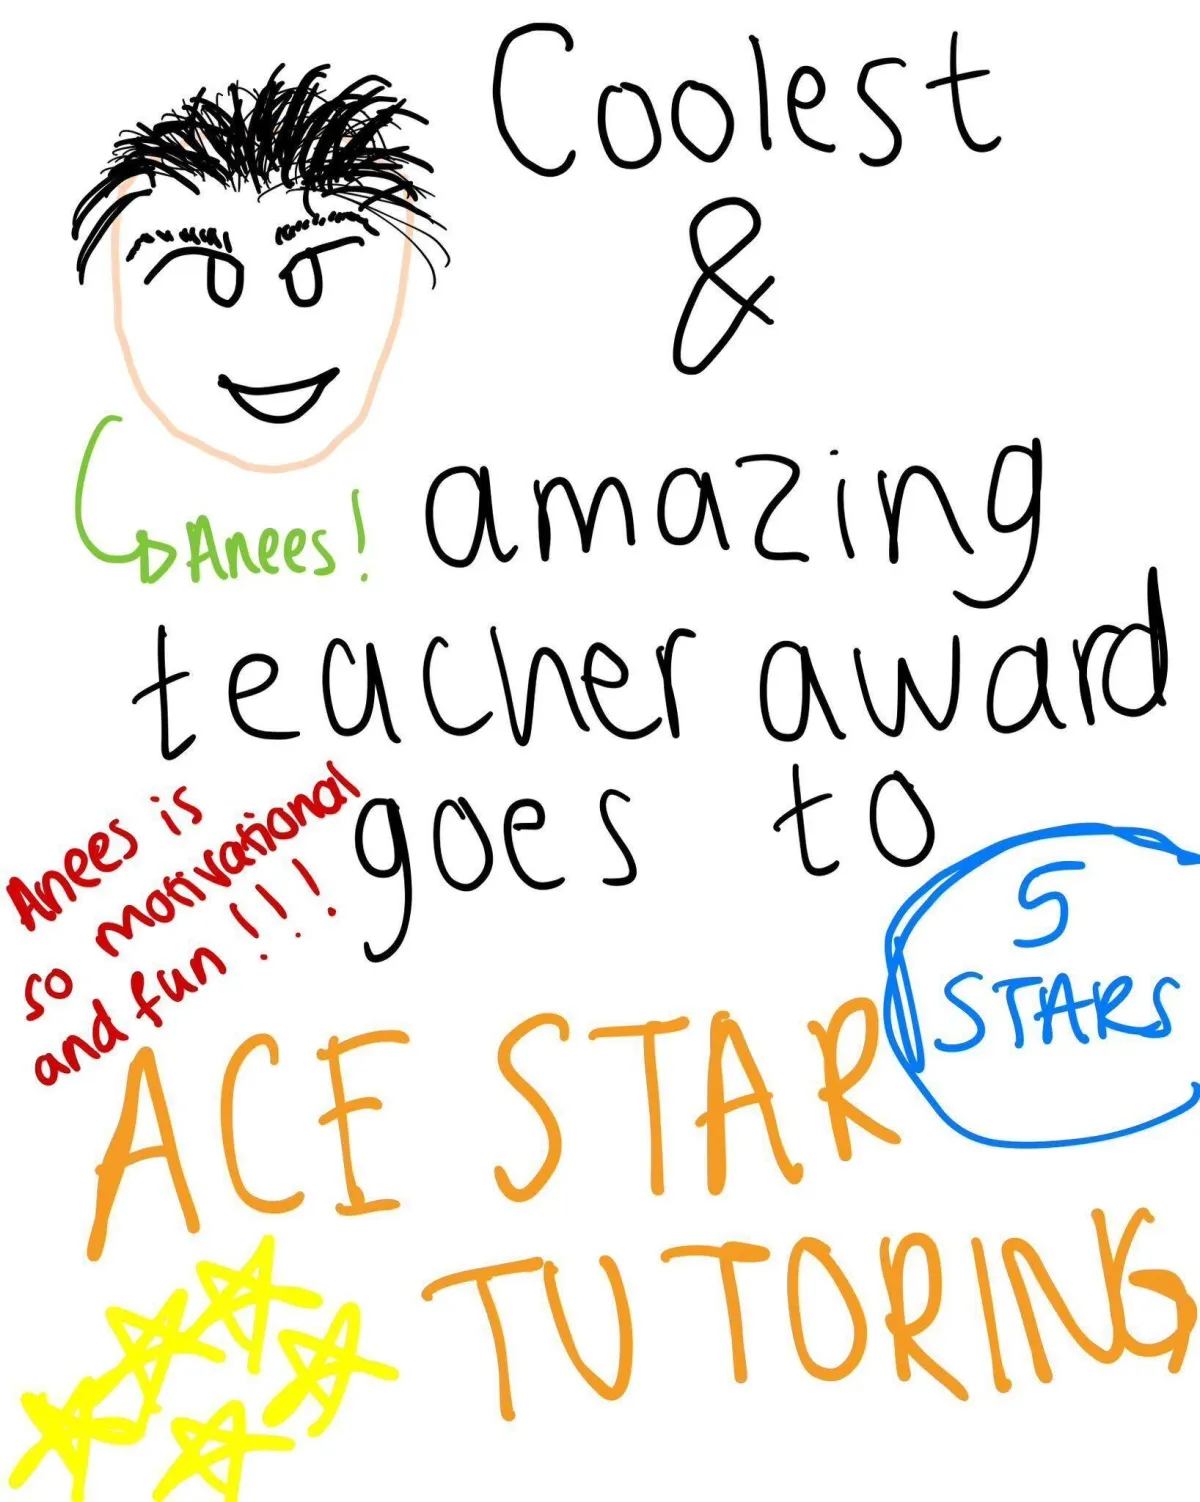 Coolest
&
amazing
teacher award
goes to
Anees!
Anees is
so motivational
and fun!!!
5
STARS
ACE STAR
TUTORING